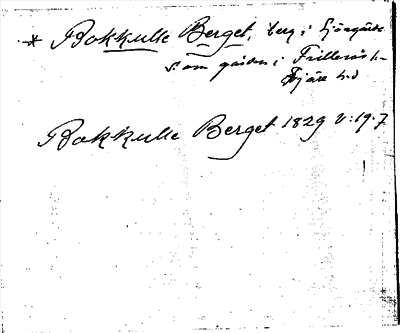 * Bokkulle Berget, berg i
S. om gården i Frillesås s.
Fjäre h.d
Bokkulle Berget 1829 V:19.7